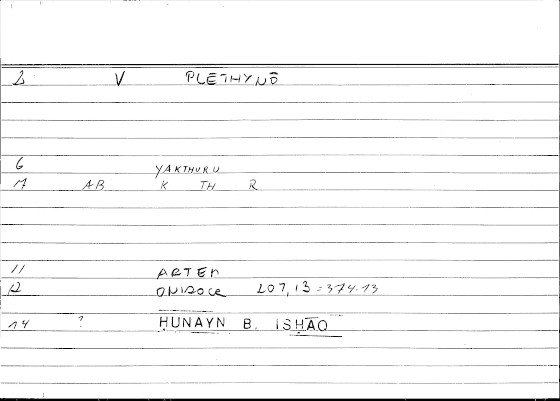 V PLĒTHYNŌ
6 YAKTHURU
AB K TH R
11 ARTEM
12 ONIROCR 207,13 = 374.13
14 ? ḤUNAYN B. ISḤĀQ